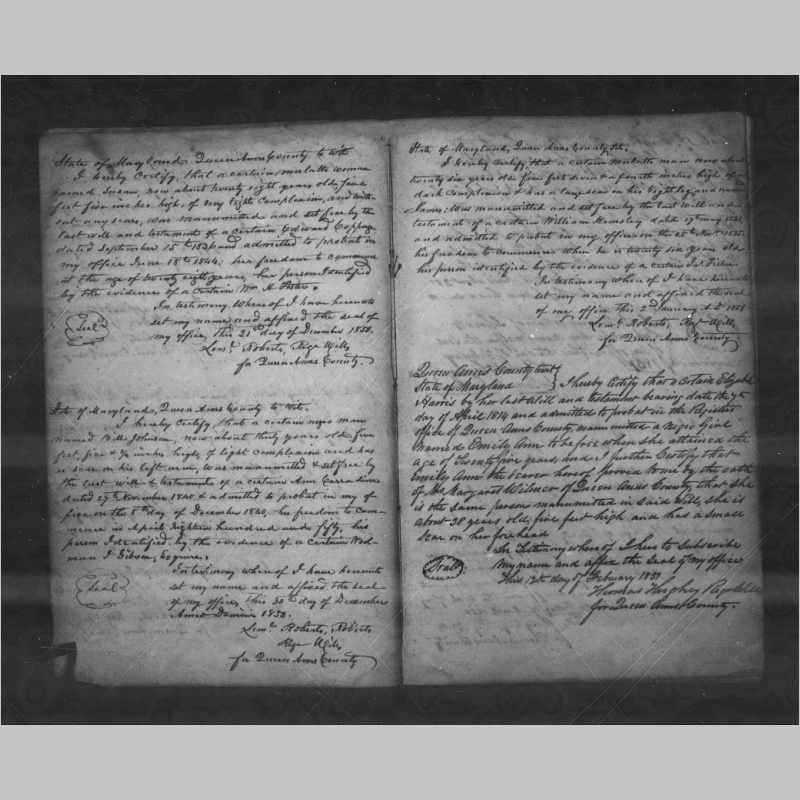 State of Maryland Queen Anns County to Wit
I hereby Certify, that a certain mulatto woman
named Susan, now about twenty eight years old, five
feet five inches high, of very light complexion, and with
out any scars, was manumitted and set free by the
last will and testament of a certain Edward Coppage
dated September 15th 1836 and admitted to probat in
my office June 18th 1844; her freedom to commence
at the age of twenty eight years, her person identified
by the evidence of a certain Wm. H.
In testimony whereof I have hereunto
set my name and affixed the seal of
my office, this 21st day of December 1850.
Seal
Leml. Roberts, Regr Wills
for Queen Anns County.
State of Maryland, Queen Anns County to Wit.
I hereby Certify, that a certain negro man
named Bill Johnson, now about thirty years old, five
feet, five & 1/2 inches high, of light complexion and has
a scar on his left arm, was manumitted & set free by
the last will & testament of a certain Ann Carradine
dated 27 November 1840 & admitted to probat in my of-
fice on the 8th day of December 1840, his freedom to com-
mence in April Eighteen hundred and fifty, his
person Identified by the evidence of a certain Wood-
man I Gibson, Esquire.
In testimony whereof I have hereunto
set my name and affixed the seal
of my office, this 30th day of December
Anno Domini 1850.
Seal
Leml. Roberts, Roberts
Regr Wills
for Queen Anns County
State of Maryland, Queen Anns County, Sct.
I hereby Certify, that a certain mulatto man now about
twenty six years old five feet seven & a fourth inches high of
dark Complexion & has a large scar on his right leg and named
James; was manumitted and set free by the last will and
testament of a certain William Hemsley dated 19th May 1825
and admitted to probat in my office on the Novr 1825;
his freedom to commence when he is twenty six years old
his person identified by the evidence of a certain
In testimony whereof I have hereunto
set my name and affixed the seal
of my office this 2nd January A.D. 1851
Leml. Roberts, Regr Wills,
for Queen Anns County
Queen Anns County Court
State of Maryland
I hereby Certify that a certain Elizabeth
Harris by her last Will and testament bearing date the 9th
day of April 1814 and admitted to probat in the Register
office of Queen Anns County, manumitted a Negro Girl
named Emily Ann to be free when she attained the
age of Twenty five years, and I further Certify that
Emily Ann the bearer hereof, proved to me by the oath
of Ms. Margaret Wilmer of Queen Anns County, that she
is the same person manumitted in said Will, she is
about 38 years old, five feet high and has a small
Scar on her forehead
In Testimony whereof I hereto subscribe
my name and affix the Seal of my office
This 12th day of February 1851
Seal
Thomas Regr Wills
for Queen Anns County.